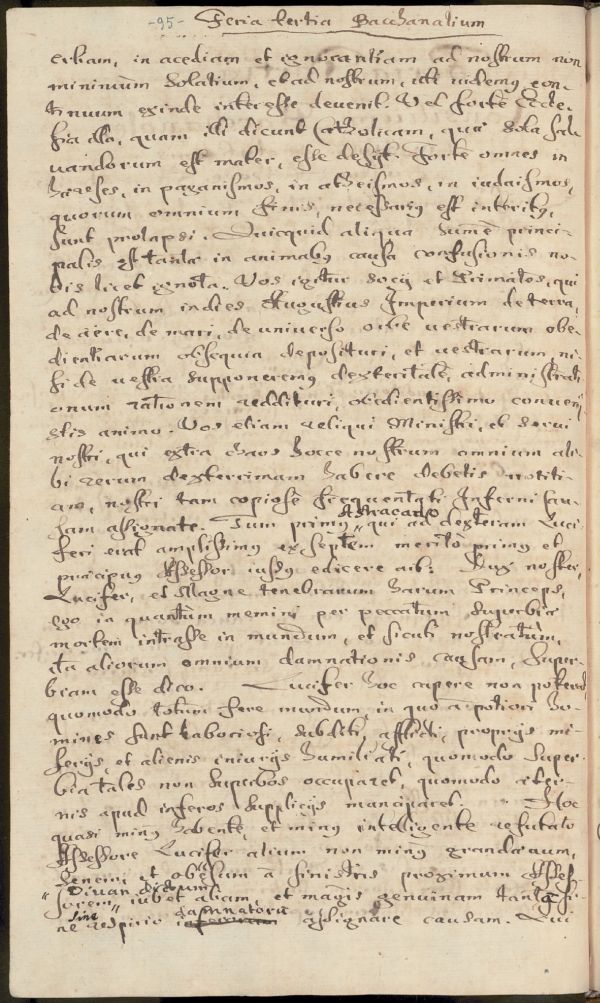 -95- Feria tertia Bacchanalium
erbiam, in acediam et ignorantiam ad nostrum non
minimum solatium, et ad nostrum, uti videmus con-
tinuum exinde interesse devenit. Vel forte Eccle-
sia illa, quam illi dicunt Catholicam, quae sola sal-
vandorum est mater, esse desijt. Forte omnes in
haereses, in paganismos, in atheismos, in iudaismos,
quorum omnium finis, necessarius est interitus,
sunt prolapsi. Quicquid aliqua summè princi-
palis est tantae in animabus causa confusionis no-
bis licet ignota. Vos igitur Socij et Primates, qui
ad nostrum indies Augustius Imperium de terra,
de aëre, de mari, de universo orbe vestrarum obe-
dientiarum obsequia deposituri, et vestrarum, ni-
si de vestra supponeremus dexteritate, administrati
onum rationem reddituri, obedientissimo conveni-
stis animo. Vos etiam reliqui Ministri, et servi
nostri, qui extra chaos hocce nostrum omnium ali-
bi rerum dexterrimam habere debetis notiti-
am, nostri tam copiosè frequentati Inferni cau-
sam assignate. Tum primus Astracado qui ad dexteram Luci
feri erat amplissimus ex septem meritò primus et
praecipuus Assessor iussus edicere ait: Dux noster,
Lucifer, et Magne tenebrarum harum Princeps,
ego in quantum memini per peccatum superbiae
mortem intrasse in mundum, et sicuti nostratum,
ita aliorum omnium damnationis causam, super-
biam esse dico. Lucifer hoc capere non poterat
quomodo totum fere mundum, in quo à potiori ho-
mines sunt laboriosi, subditi, afflicti, proprijs mi-
serijs, et alienis iniurijs humiliati, quomodo super-
bia tales non superbos occuparet, quomodo aeter-
nis apud inferos supplicijs manciparet. Hoc
quasi minus habente, et minus intelligente refutato
Assessore Lucifer alium non minus grandaevum,
et obesum à sinistris proximum Asses-
sorem Divan dictum iubet aliam, et magis genuinam tantae si-
ne respirio damnatorum assignare causam. Qui